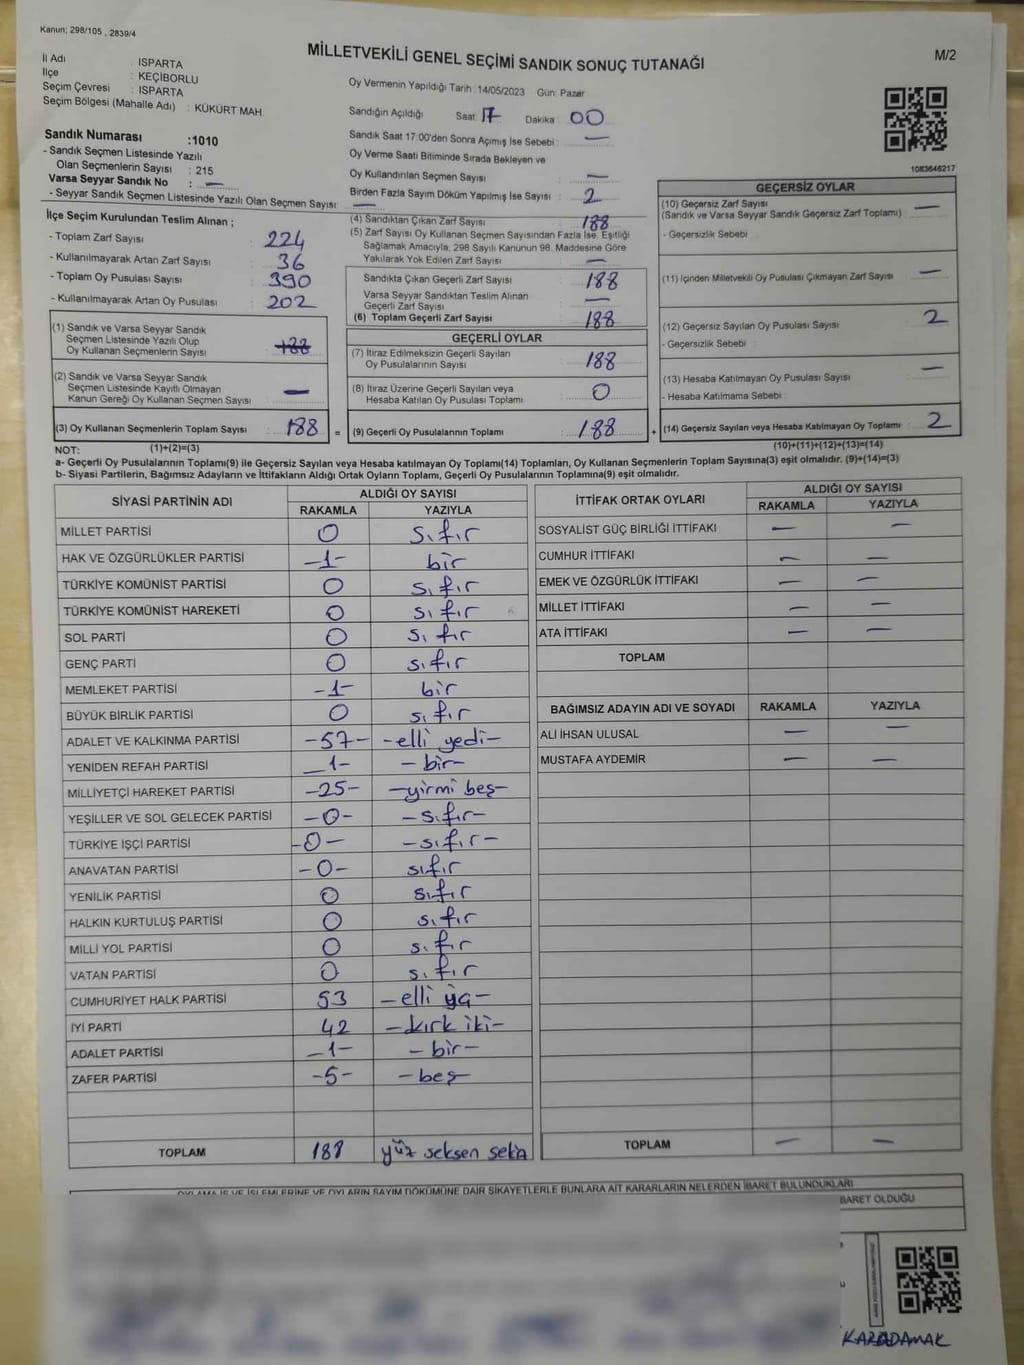 Kanun; 298/105 , 2839/4
MİLLETVEKİLİ GENEL SEÇİMİ SANDIK SONUÇ TUTANAĞI
M/2
İl Adı : ISPARTA
İlçe : KEÇİBORLU
Seçim Çevresi : ISPARTA
Seçim Bölgesi (Mahalle Adı) : KÜKÜRT MAH.
Sandık Numarası :1010
- Sandık Seçmen Listesinde Yazılı
Olan Seçmenlerin Sayısı : 215
Varsa Seyyar Sandık No : —
- Seyyar Sandık Seçmen Listesinde Yazılı Olan Seçmen Sayısı: —
Oy Vermenin Yapıldığı Tarih :14/05/2023 Gün: Pazar
Sandığın Açıldığı Saat: 17 Dakika: 00
Sandık Saat 17:00'den Sonra Açımış İse Sebebi : —
Oy Verme Saati Bitiminde Sırada Bekleyen ve
Oy Kullandırılan Seçmen Sayısı : —
Birden Fazla Sayım Döküm Yapılmış İse Sayısı : 2
1083646217
İlçe Seçim Kurulundan Teslim Alınan ;
- Toplam Zarf Sayısı : 224
- Kullanılmayarak Artan Zarf Sayısı : 36
- Toplam Oy Pusulası Sayısı : 390
- Kullanılmayarak Artan Oy Pusulası : 202
(1) Sandık ve Varsa Seyyar Sandık
Seçmen Listesinde Yazılı Olup
Oy Kullanan Seçmenlerin Sayısı : 188
(2) Sandık ve Varsa Seyyar Sandık
Seçmen Listesinde Kayıtlı Olmayan
Kanun Gereği Oy Kullanan Seçmen Sayısı : —
(3) Oy Kullanan Seçmenlerin Toplam Sayısı : 188 =
(1)+(2)=(3)
(4) Sandıktan Çıkan Zarf Sayısı : 188
(5) Zarf Sayısı Oy Kullanan Seçmen Sayısından Fazla İse, Eşitliği
Sağlamak Amacıyla, 298 Sayılı Kanunun 98. Maddesine Göre
Yakılarak Yok Edilen Zarf Sayısı : —
Sandıkta Çıkan Geçerli Zarf Sayısı : 188
Varsa Seyyar Sandıktan Teslim Alınan
Geçerli Zarf Sayısı : —
(6) Toplam Geçerli Zarf Sayısı : 188
GEÇERLİ OYLAR
(7) İtiraz Edilmeksizin Geçerli Sayılan
Oy Pusulalarının Sayısı : 188
(8) İtiraz Üzerine Geçerli Sayılan veya
Hesaba Katılan Oy Pusulası Toplamı : 0
(9) Geçerli Oy Pusulalarının Toplamı : 188 +
GEÇERSİZ OYLAR
(10) Geçersiz Zarf Sayısı : —
(Sandık ve Varsa Seyyar Sandık Geçersiz Zarf Toplamı)
- Geçersizlik Sebebi :
(11) İçinden Milletvekili Oy Pusulası Çıkmayan Zarf Sayısı : —
(12) Geçersiz Sayılan Oy Pusulası Sayısı : 2
- Geçersizlik Sebebi :
(13) Hesaba Katılmayan Oy Pusulası Sayısı : —
- Hesaba Katılmama Sebebi :
(14) Geçersiz Sayılan veya Hesaba Katılmayan Oy Toplamı : 2
(10)+(11)+(12)+(13)=(14)
NOT:
a- Geçerli Oy Pusulalarının Toplamı(9) ile Geçersiz Sayılan veya Hesaba katılmayan Oy Toplamı(14) Toplamları, Oy Kullanan Seçmenlerin Toplam Sayısına(3) eşit olmalıdır. (9)+(14)=(3)
b- Siyasi Partilerin, Bağımsız Adayların ve İttifakların Aldığı Ortak Oyların Toplamı, Geçerli Oy Pusulalarının Toplamına(9) eşit olmalıdır.
SİYASİ PARTİNİN ADI ALDIĞI OY SAYISI
RAKAMLA YAZIYLA
MİLLET PARTİSİ 0 sıfır
HAK VE ÖZGÜRLÜKLER PARTİSİ -1- bir
TÜRKİYE KOMÜNİST PARTİSİ 0 sıfır
TÜRKİYE KOMÜNİST HAREKETİ 0 sıfır
SOL PARTİ 0 sıfır
GENÇ PARTİ 0 sıfır
MEMLEKET PARTİSİ -1- bir
BÜYÜK BİRLİK PARTİSİ 0 sıfır
ADALET VE KALKINMA PARTİSİ -57- -elli yedi-
YENİDEN REFAH PARTİSİ -1- -bir-
MİLLİYETÇİ HAREKET PARTİSİ -25- -yirmi beş-
YEŞİLLER VE SOL GELECEK PARTİSİ -0- -sıfır-
TÜRKİYE İŞÇİ PARTİSİ -0- -sıfır-
ANAVATAN PARTİSİ -0- sıfır
YENİLİK PARTİSİ 0 sıfır
HALKIN KURTULUŞ PARTİSİ 0 sıfır
MİLLİ YOL PARTİSİ 0 sıfır
VATAN PARTİSİ 0 sıfır
CUMHURİYET HALK PARTİSİ 53 -elli üç-
İYİ PARTİ 42 -kırk iki-
ADALET PARTİSİ -1- -bir-
ZAFER PARTİSİ -5- -beş-
TOPLAM 188 yüz seksen sekiz
İTTİFAK ORTAK OYLARI ALDIĞI OY SAYISI
RAKAMLA YAZIYLA
SOSYALİST GÜÇ BİRLİĞİ İTTİFAKI — —
CUMHUR İTTİFAKI — —
EMEK VE ÖZGÜRLÜK İTTİFAKI — —
MİLLET İTTİFAKI — —
ATA İTTİFAKI — —
TOPLAM
BAĞIMSIZ ADAYIN ADI VE SOYADI RAKAMLA YAZIYLA
ALİ İHSAN ULUSAL — —
MUSTAFA AYDEMİR — —
TOPLAM — —
OYLAMA İŞ VE İŞLEMLERİNE VE OYLARIN SAYIM DÖKÜMÜNE DAİR ŞİKAYETLERLE BUNLARA AİT KARARLARIN NELERDEN İBARET BULUNDUKLARI
BARET OLDUĞU
KARADAMAK